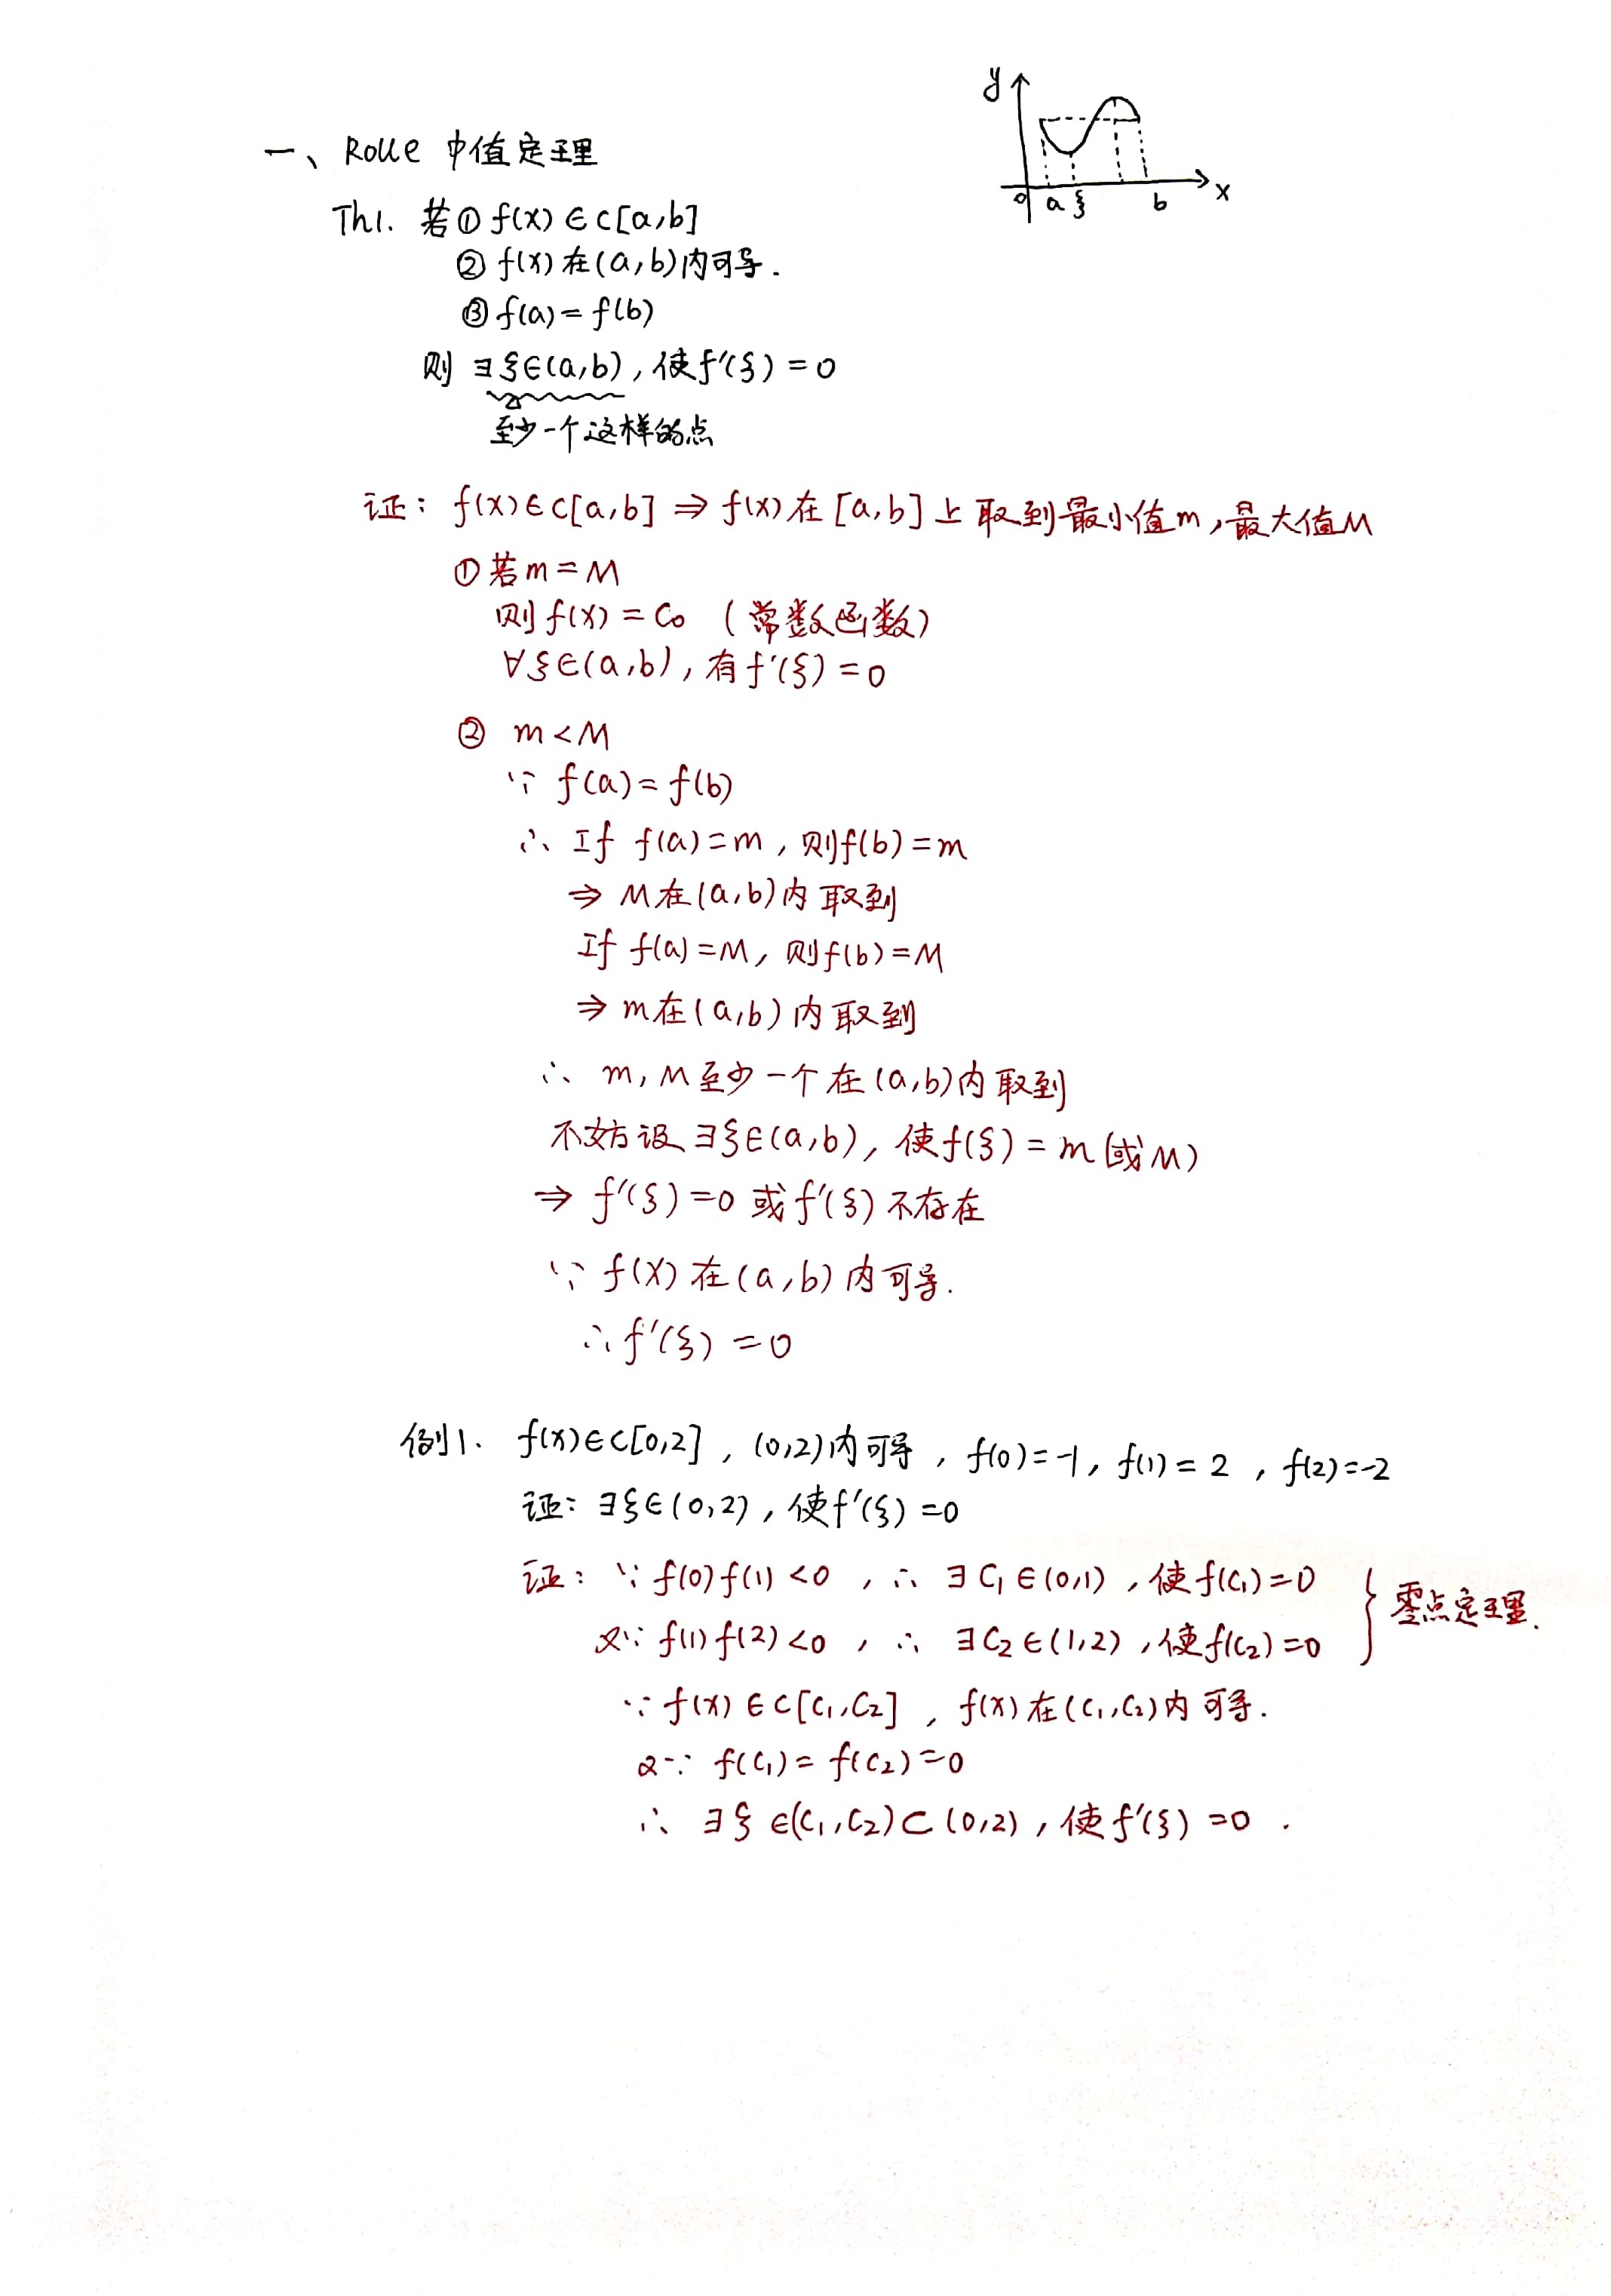 y
x
0 a ξ b
一、Rolle 中值定理
Th1. 若① f(x)∈C[a,b]
② f(x)在(a,b)内可导.
③ f(a)=f(b)
则 ∃ξ∈(a,b),使f'(ξ)=0
至少一个这样的点
证: f(x)∈C[a,b] ⇒ f(x)在[a,b]上取到最小值m,最大值M
① 若m=M
则f(x)=C₀ (常数函数)
∀ξ∈(a,b),有f'(ξ)=0
② m<M
∵ f(a)=f(b)
∴ If f(a)=m,则f(b)=m
⇒ M在(a,b)内取到
If f(a)=M,则f(b)=M
⇒ m在(a,b)内取到
∴ m,M至少一个在(a,b)内取到
不妨设∃ξ∈(a,b),使f(ξ)=m(或M)
⇒ f'(ξ)=0或f'(ξ)不存在
∵ f(x)在(a,b)内可导.
∴ f'(ξ)=0
例1. f(x)∈C[0,2],(0,2)内可导,f(0)=-1,f(1)=2,f(2)=-2
证:∃ξ∈(0,2),使f'(ξ)=0
证:∵ f(0)f(1)<0,∴ ∃C₁∈(0,1),使f(C₁)=0
又∵ f(1)f(2)<0,∴ ∃C₂∈(1,2),使f(C₂)=0
} 零点定理.
∵ f(x)∈C[C₁,C₂],f(x)在(C₁,C₂)内可导.
又∵ f(C₁)=f(C₂)=0
∴ ∃ξ∈(C₁,C₂)⊂(0,2),使f'(ξ)=0.